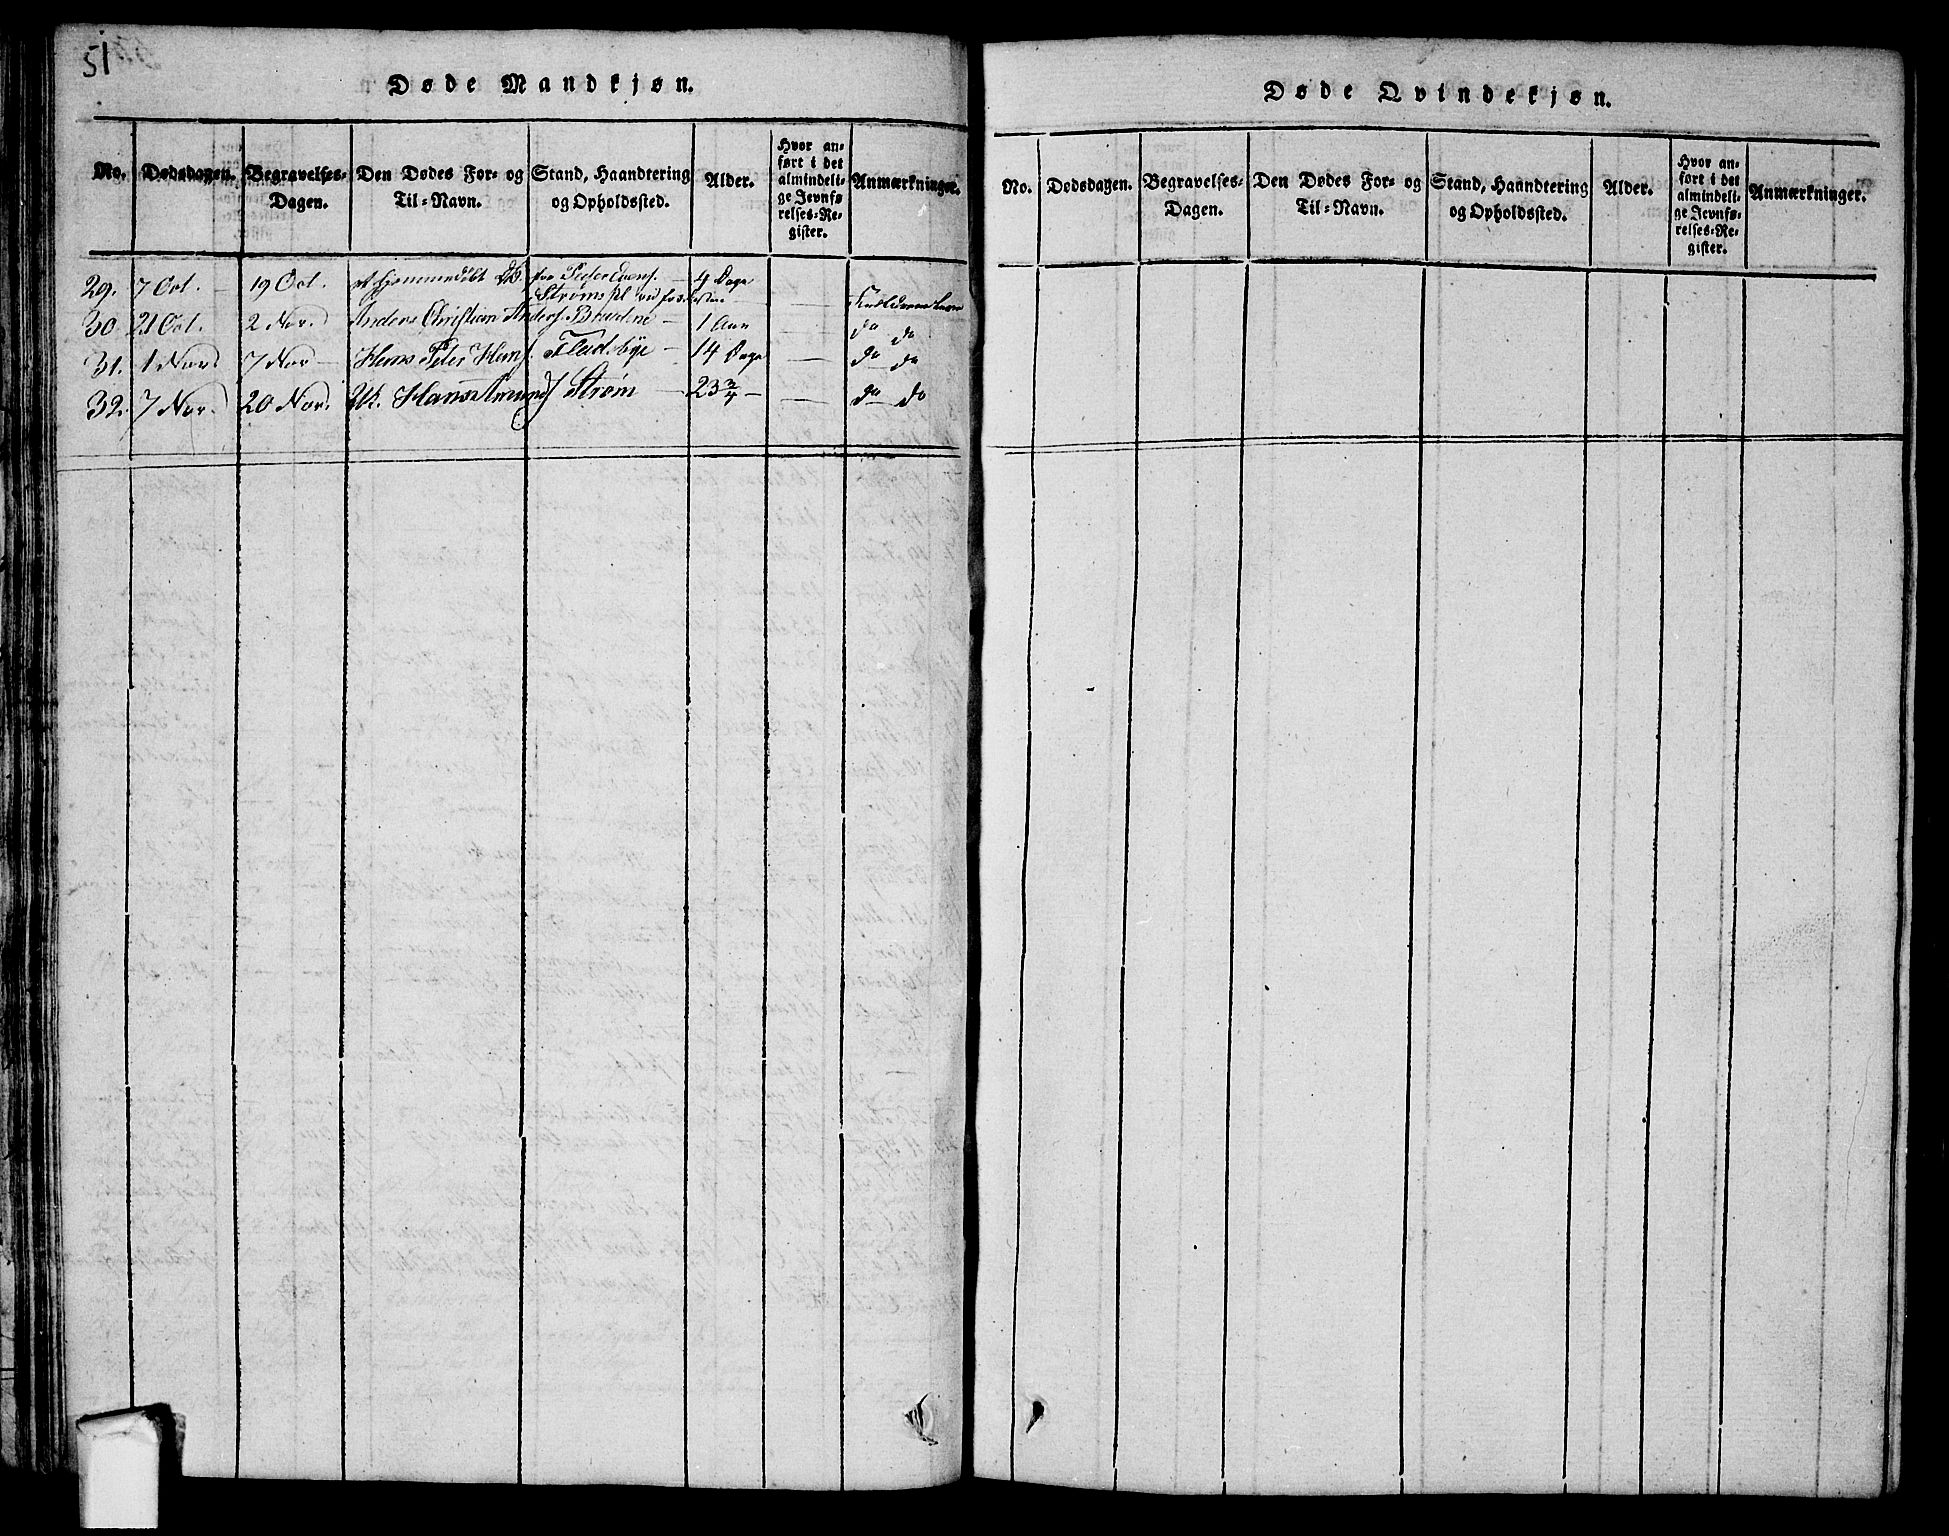 51
Døde Mandkjøn.
No. Dødsdagen. Begravelses-Dagen. Den Dødes For- og Til-Navn. Stand, Haandtering og Opholdssted. Alder. Hvor anført i det almindelige Jevnførelses-Register. Anmærkninger.
29. 7 Oct. 19 Oct. et hjemmedøbt for Peder 4 Dage
Strøms
30 21 Oct. 2 Nov. Anders Christian Anders. 1 Aar do do
31. 1 Nov. 7 Nov Hans Peter Hans. 14 Dage do do
32. 7 Nov. 20 Nov. Hans Strøm 23 3/4 do do
Døde Qvindekjøn.
No. Dødsdagen. Begravelses-Dagen. Den Dødes For- og Til-Navn. Stand, Haandtering og Opholdssted. Alder. Hvor anført i det almindelige Jevnførelses-Register. Anmærkninger.